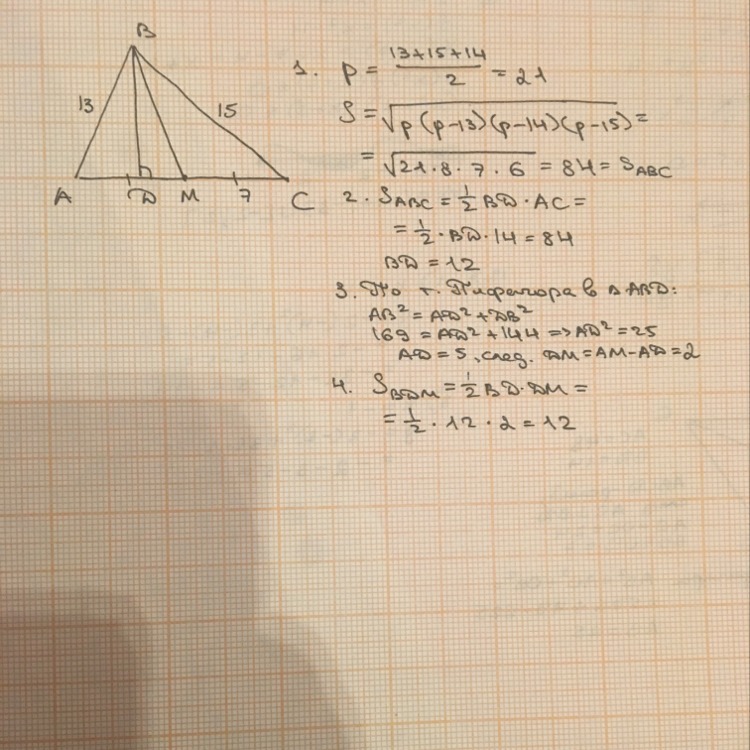 B
13
15
A D M 7 C
1. p = (13+15+14)/2 = 21
S = √(p(p-13)(p-14)(p-15)) =
= √(21·8·7·6) = 84 = S_ABC
2. S_ABC = 1/2 BD · AC =
= 1/2 · BD · 14 = 84
BD = 12
3. По т. Пифагора в Δ ABD:
AB² = AD² + DB²
169 = AD² + 144 => AD² = 25
AD = 5, след. DM = AM - AD = 2
4. S_BDM = 1/2 BD · DM =
= 1/2 · 12 · 2 = 12